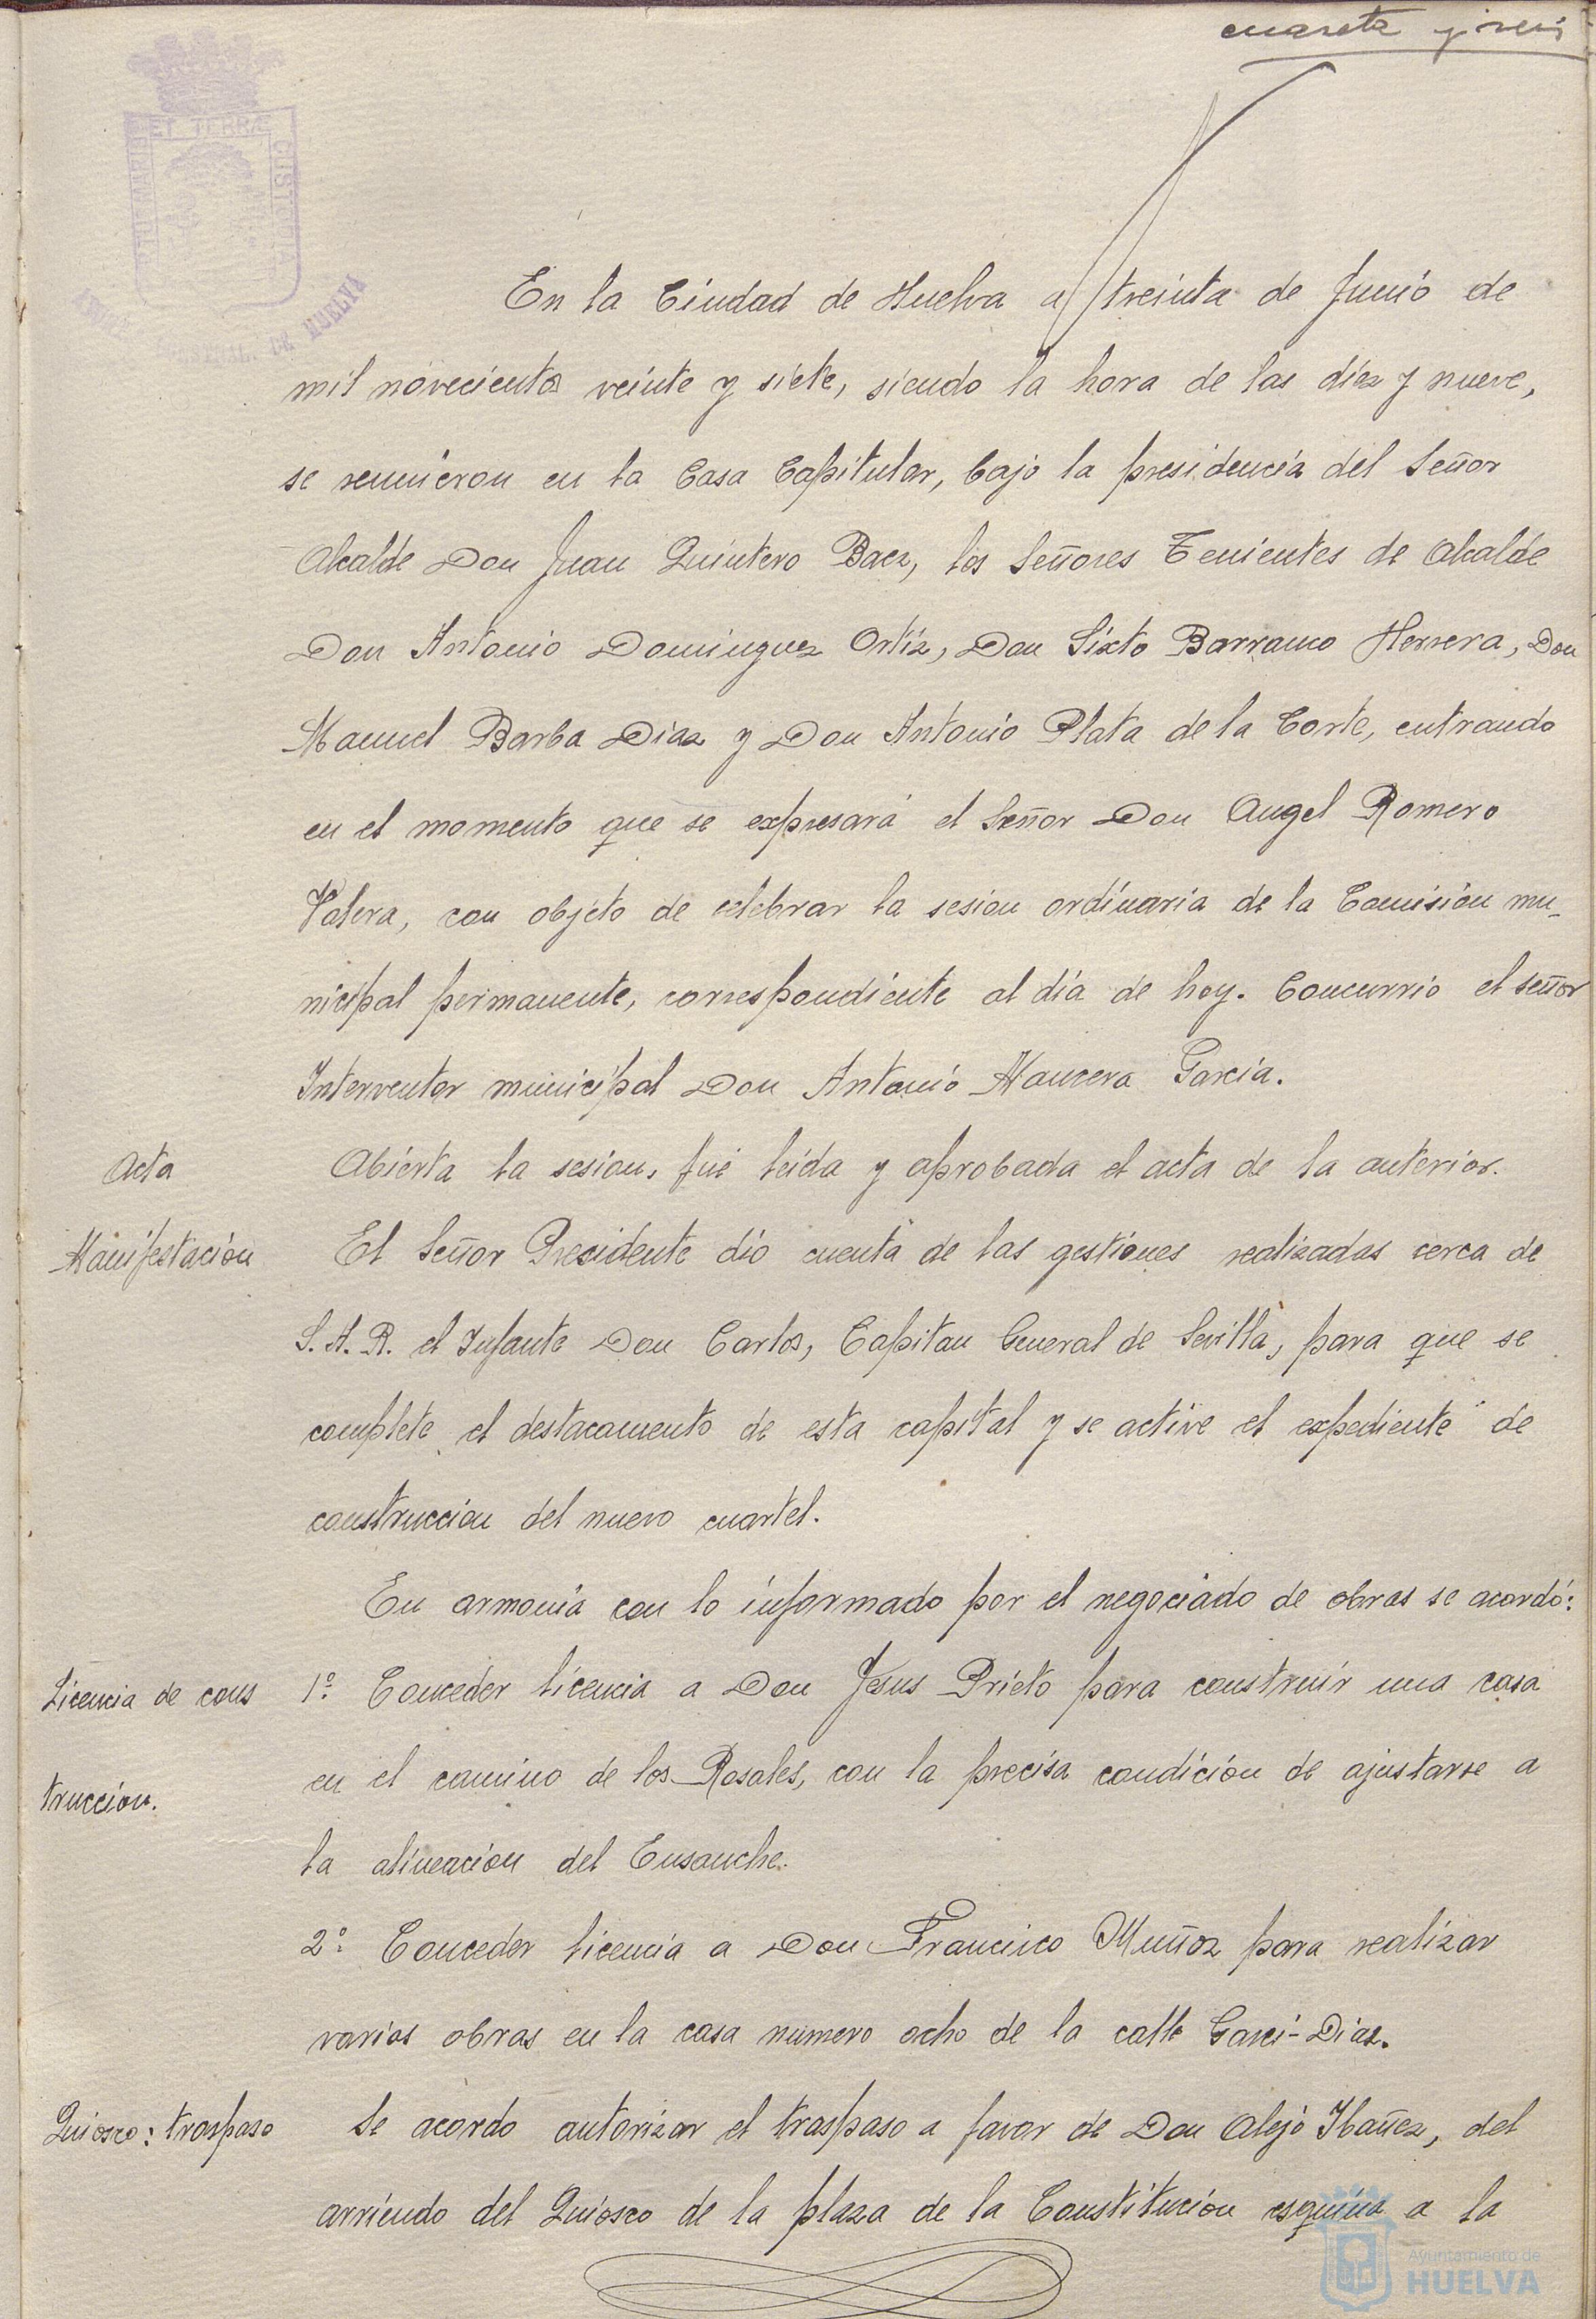 cuareta y seis
ET TERRÆ
CUSTOD
HUELVA
En la Ciudad de Huelva a treinta de Junio de
mil novecientos veinte y siete, siendo la hora de las diez y nueve,
se reunieron en la Casa Capitular, bajo la presidencia del Señor
Alcalde Don Juan Quintero Baez, los Señores Tenientes de Alcalde
Don Antonio Dominguez Ortiz, Don Sixto Barranco Herrera, Don
Manuel Barba Diaz y Don Antonio Plata de la Corte, entrando
en el momento que se expresará el Señor Don Angel Romero
Valera, con objeto de celebrar la sesion ordinaria de la Comisión mu-
nicipal permanente, correspondiente al día de hoy. Concurrio el señor
Interventor municipal Don Antonio Mancera Garcia.
Acta Abierta la sesion, fué leida y aprobada el acta de la anterior.
Manifestación El Señor Presidente dio cuenta de las gestiones realizadas cerca de
S. A. R. el Infante Don Carlos, Capitan General de Sevilla, para que se
complete el destacamento de esta capital y se active el expediente de
construccion del nuevo cuartel.
En armonia con lo informado por el negociado de obras se acordó:
Licencia de cons 1º. Conceder licencia a Don Jesus Prieto para construir una casa
en el camino de los Rosales, con la precisa condición de ajustarse a
truccion.
la alineacion del Ensanche.
2º. Conceder licencia a Don Francisco Muñoz para realizar
varios obras en la casa numero ocho de la calle Garci-Diaz.
Quiosco: traspaso Se acordo autorizar el traspaso a favor de Don Alejo Ibañez, del
arriendo del Quiosco de la plaza de la Constitucion esquina a la
Ayuntamiento de
HUELVA